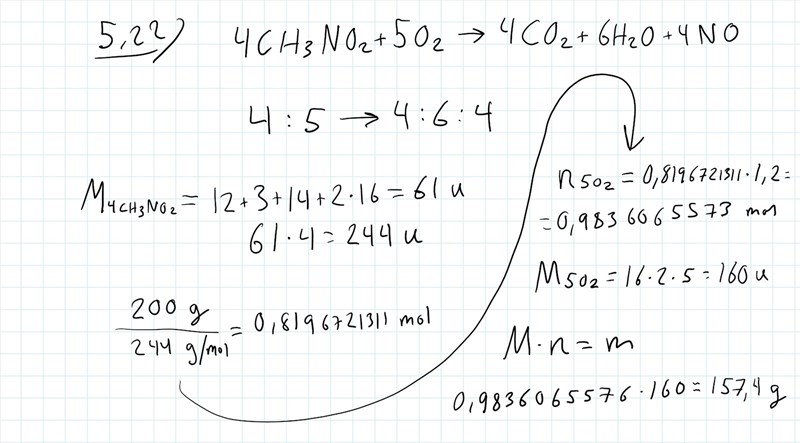 5,22) 4CH₃NO₂+5O₂ → 4CO₂+6H₂O+4NO
4 : 5 → 4:6:4
M₄CH₃NO₂ = 12+3+14+2·16 = 61 u
61·4 = 244 u
200 g / 244 g/mol = 0,8196721311 mol
n₅O₂ = 0,8196721311·1,2=
=0,9836065573 mol
M₅O₂ = 16·2·5 = 160 u
M·n = m
0,9836065576·160 = 157,4 g